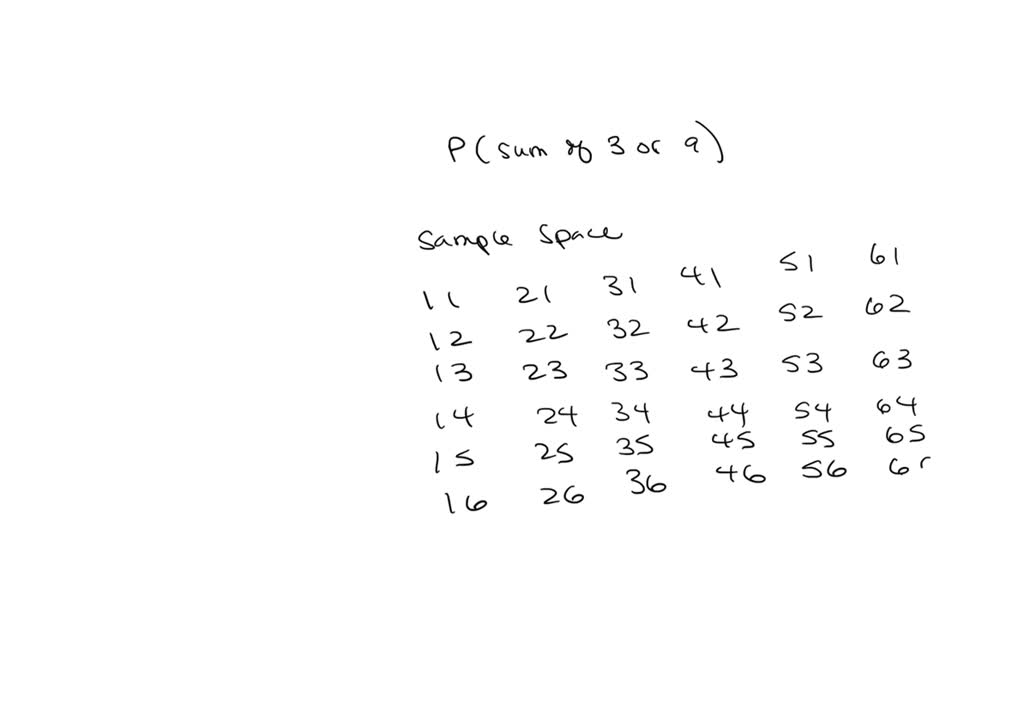 P(sum of 3 or 9)
Sample Space
11 21 31 41 51 61
12 22 32 42 52 62
13 23 33 43 53 63
14 24 34 44 54 64
15 25 35 45 55 65
16 26 36 46 56